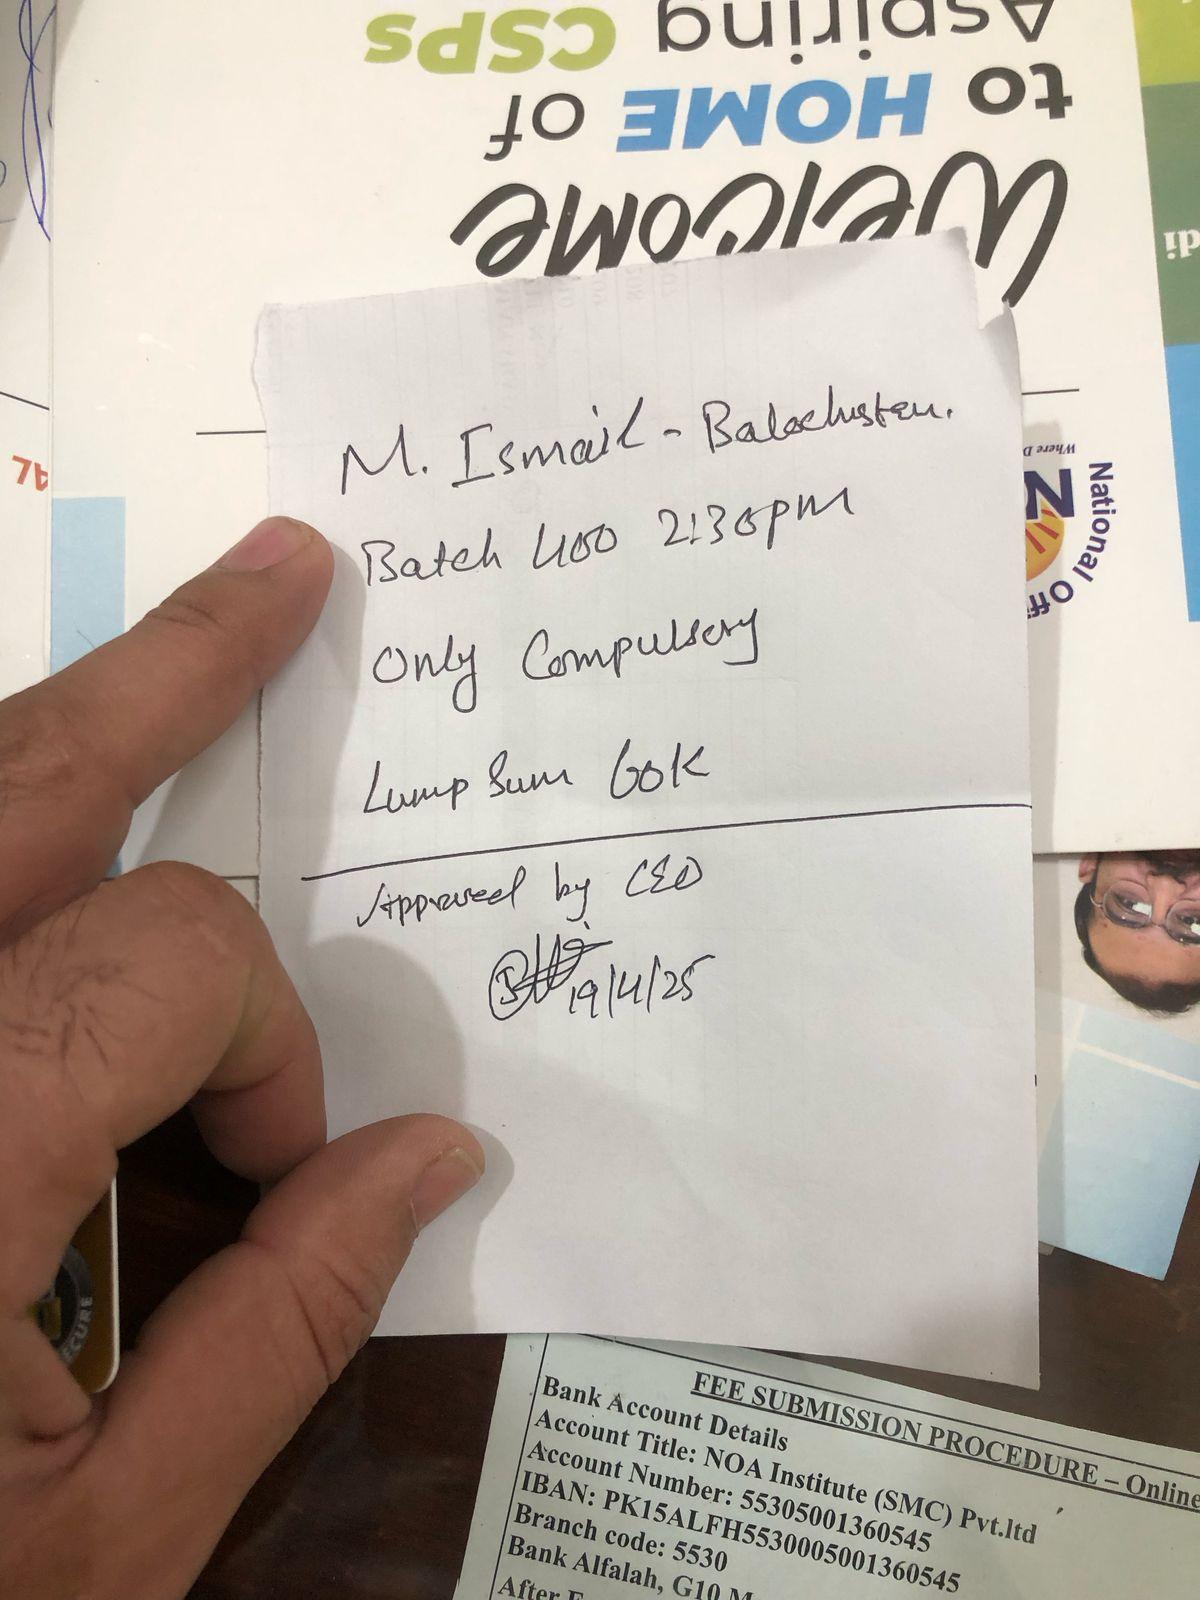 Welcome
to HOME of
Aspiring CSPs
di
AL
National Offi
Where D
M. Ismail - Balochistan.
Batch 400 2:30pm
Only Compulsory
Lump Sum 60K
Approved by CEO
19/4/25
ECURE
FEE SUBMISSION PROCEDURE – Online
Bank Account Details
Account Title: NOA Institute (SMC) Pvt.ltd
Account Number: 55305001360545
IBAN: PK15ALFH5530005001360545
Branch code: 5530
Bank Alfalah, G10 M
After